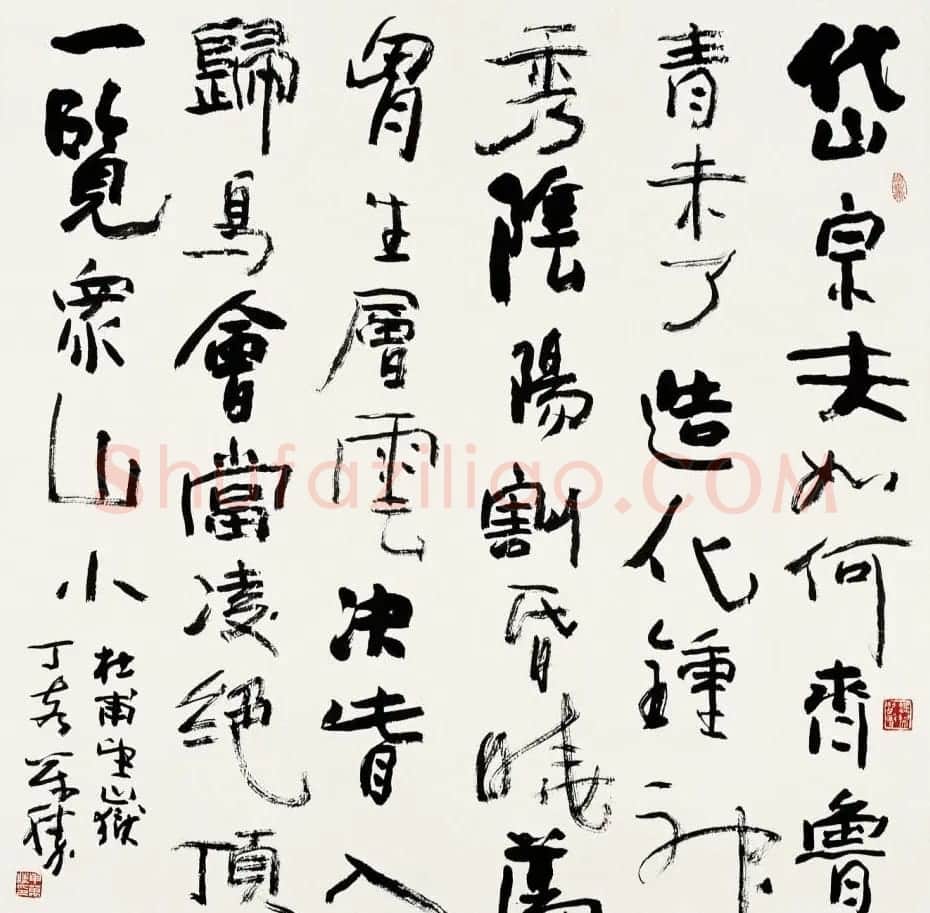 岱宗夫如何齊魯
青未了造化鍾神
秀陰陽割昏曉蕩
胷生層雲决眥入
歸鳥會當凌絕頂
一覽衆山小
杜甫望嶽
丁亥
Shufaziliao.COM